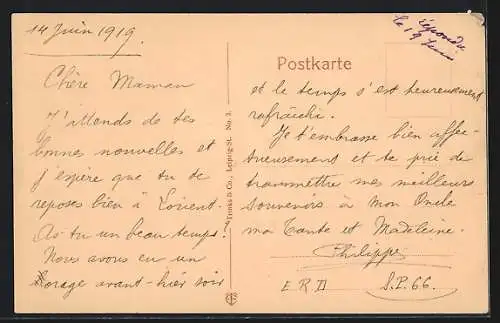 14 Juin 1919.
Chère Maman
J'attends de tes
bonnes nouvelles et
j'espère que tu te
reposes bien à Lorient.
As tu un beau temps?
Nous avons eu un
orage avant-hier soir
Trinks & Co., Leipzig-St. No. 3.
Postkarte
répondu
le 19 juin
et le temps s'est heureusement
rafraîchi.
Je t'embrasse bien affec-
tueusement et te prie de
transmettre mes meilleurs
souvenirs à mon Oncle
ma Tante et Madeleine.
Philippe
E R II S.P. 66.